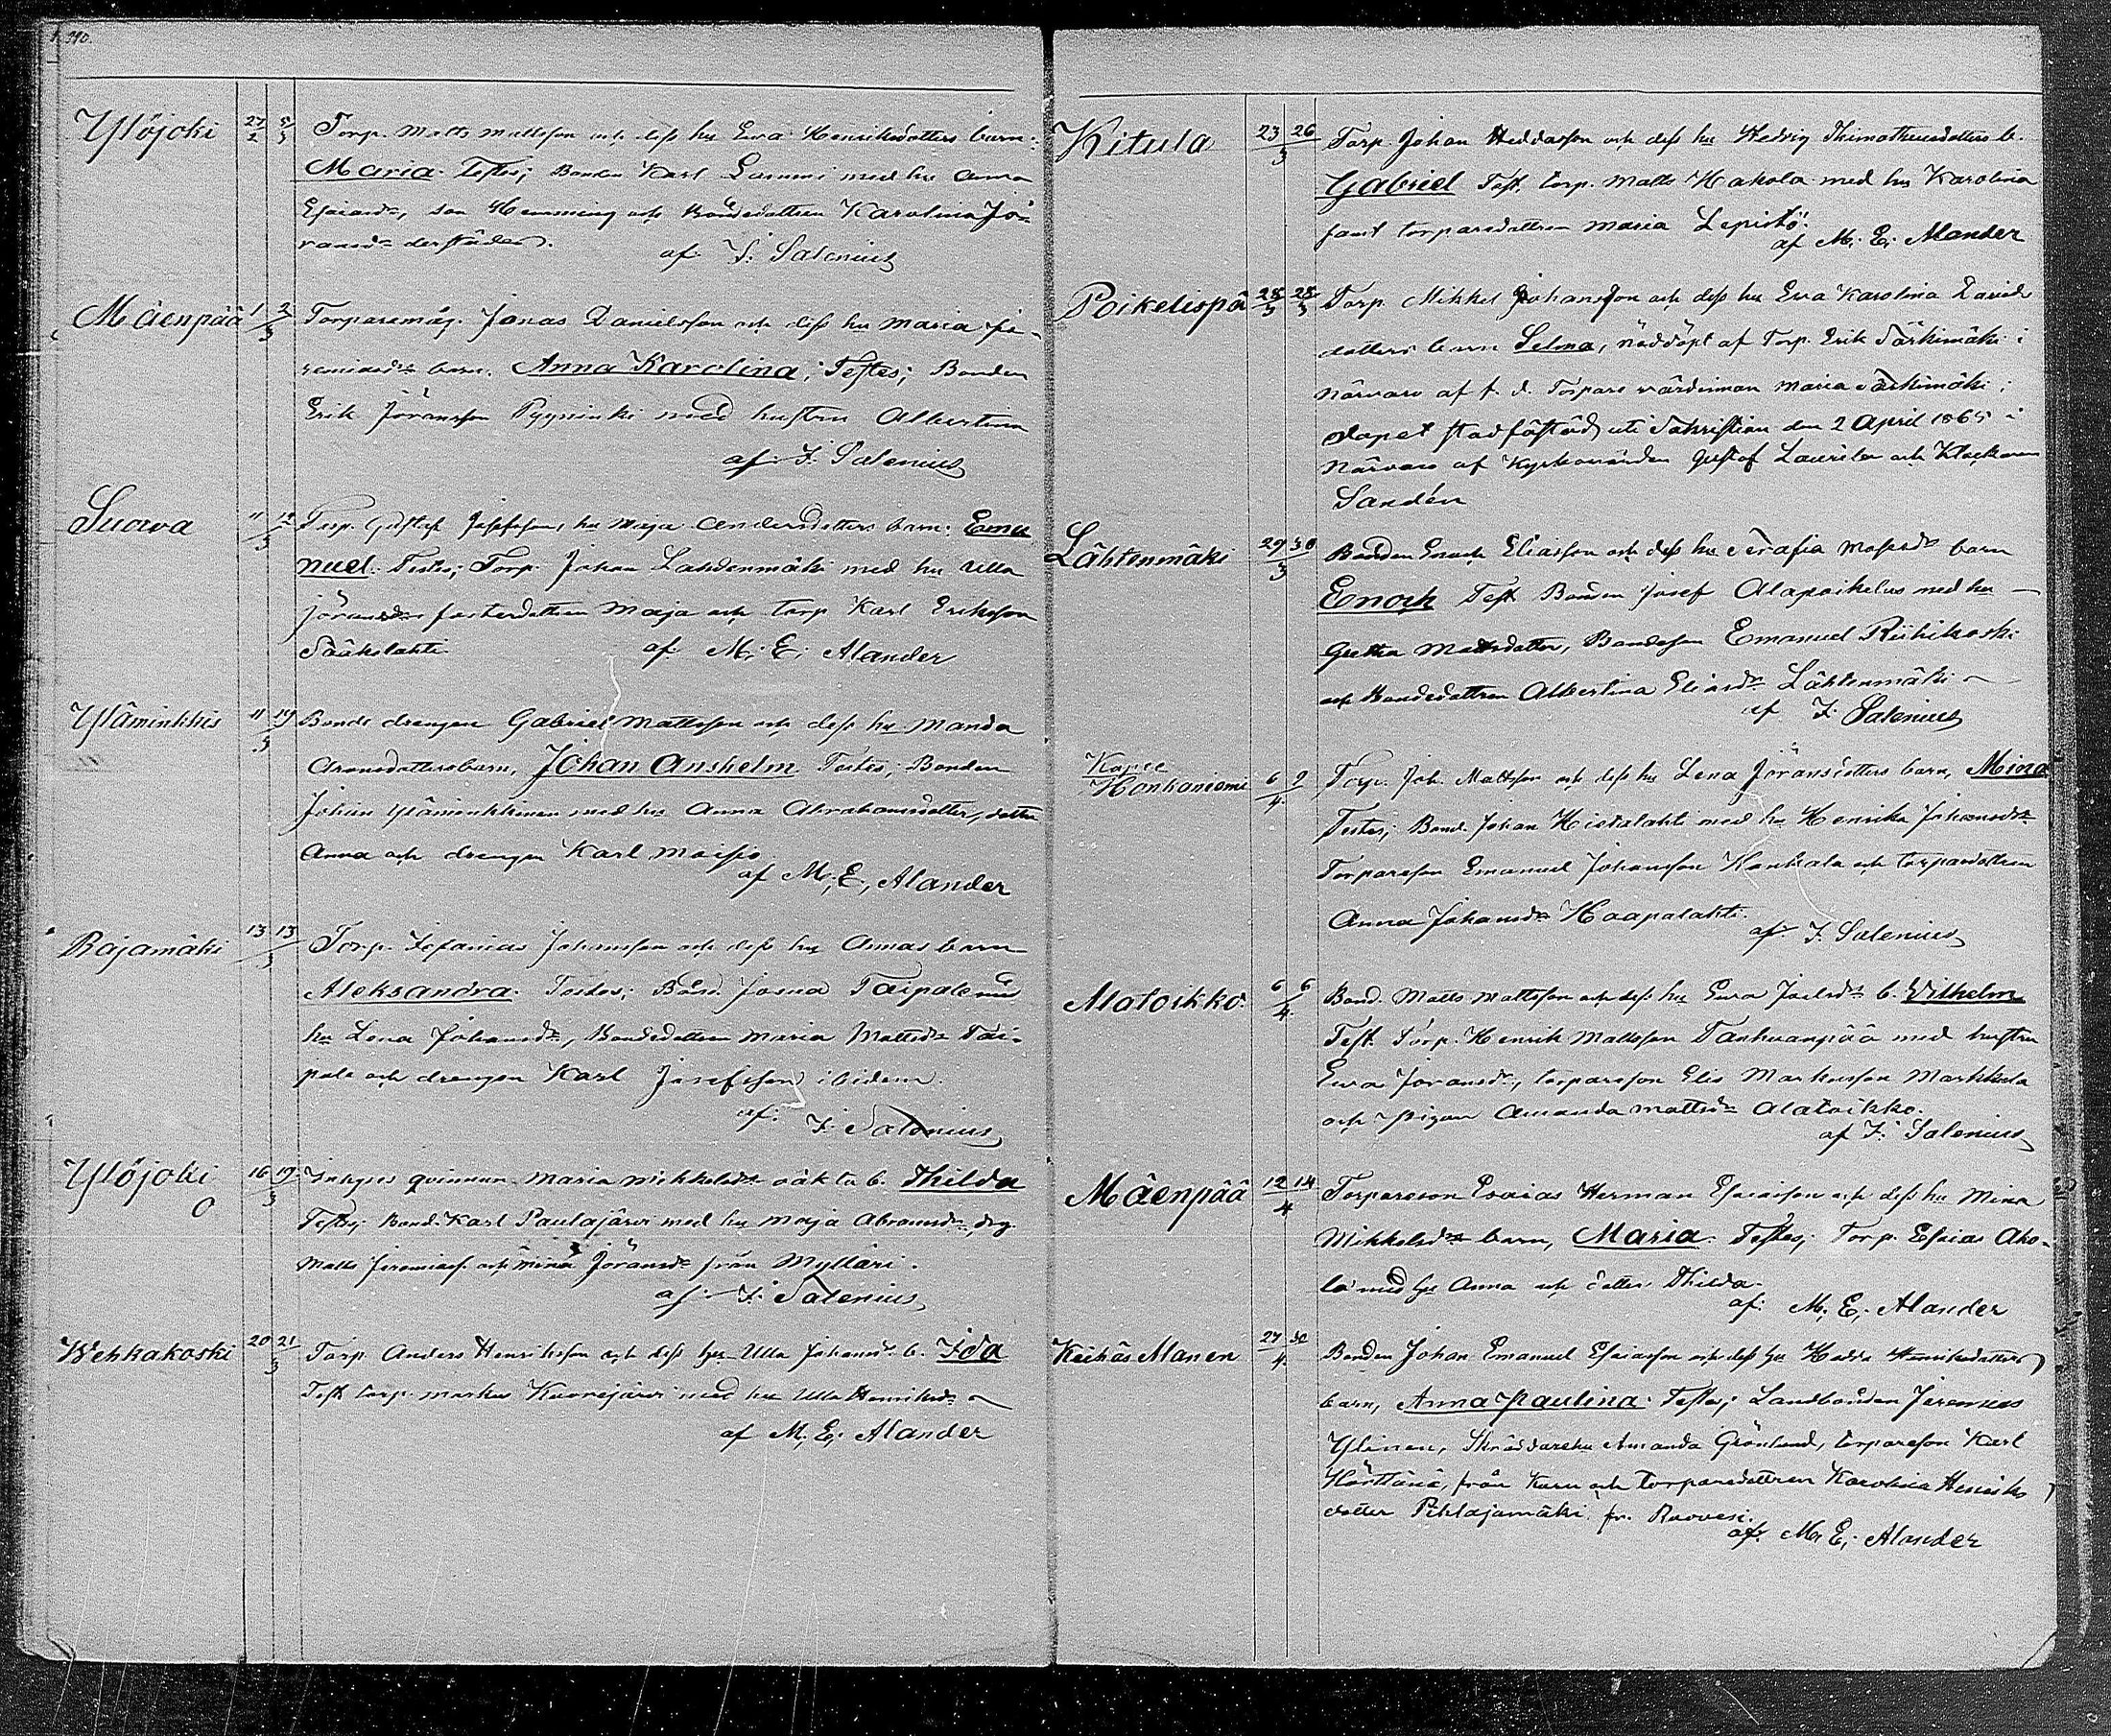 390.
Ylöjoki 27/2 5/3 Torp. Matts Mattsson och dess hu Ewa Henriksdotters barn:
Maria. Testes; Bonden Karl Lammi med hu Anna
Esaiasdr, son Hemming och Bondedottren Karolina Jö-
ransdr derstädes.
af F. Salenius
Mäenpää 1 2/3 Torparemåg. Jonas Danielsson och dess hu Maria Je-
remiasdr barn. Anna Karolina; Testes; Bonden
Erik Jöransson Pyyninki med hustru Albertina
af F. Salenius
Suowa 11 12/3 Torp. Gustaf Josefsson, hu Maja Andersdotters barn: Ema
nuel. Testes; Torp. Johan Lahdenmäki med hu Ulla
Jöransdr fosterdottren Maja och torp Karl Eriksson
Sääkslahti af M. E. Alander
Yläminkkis 11 19/3 Bonde drengen Gabriel Mattsson och dess hu Manda
Aronsdotters barn, Johan Anshelm Testes; Bonden
Johan Yläminkkinen med hu Anna Abrahamsdotter, dotter
Anna och drengen Karl Moisio
af M. E. Alander
Rajamäki 13 13/3 Torp. Zefanias Johansson och dess hu Annas barn
Aleksandra. Testes; Bond. Josua Taipale med
hu Lena Johansdr, Bondedottren Maria Mattsdr Tai-
pale och drengen Karl Josefsson ibidem.
af: F. Salenius
Ylöjoki 16 19/3 Inhyses qvinnan Maria Mikkelsdr oäkta b. Thilda
Testes; Bond. Karl Paulajärvi med hu Maja Abramsdr, drg.
Matts Jeremiass. och Mina Jöransdr från Mylläri.
af F. Salenius
Wehkakoski 20 21/3 Torp Anders Henriksson och dess hu Ulla Johansdr b. Ida
Test torp. Markus Kuorejärvi med hu Ulla Henriksdr
af M. E. Alander
Kitula 23 26/3 Torp Johan Heddasson och dess hu Hedvig Thimotheusdotters b.
Gabriel Test. torp. Matts Hakola med hu Karolina
samt torparedottren Maria Lepistö.
af M. E. Alander
Poikelispä 28/3 28/3 Torp. Mikkel Johansson och dess hu Eva Karolina Davids
dotters barn Selma, nöddöpt af Torp. Erik Särkimäki i
närvaro af f. d. Torpare värdinnan Maria Särkimäki;
dopet stadfästad uti Sakristian den 2 April 1865 i
närvaro af Kyrkovärden Gustaf Laurila och Klockaren
Sandén
Lähtenmäki 29 30/3 Bonden Enoch Eliasson och dess hu Serafia Mosesdr barn
Enoch Test Bonden Josef Alapoikelus med hu
Greta Mattsdotter, Bondeson Emanuel Riihikoski
och Bondedottren Albertina Eliasdr Lähtenmäki
af F. Salenius
Honkaniemi 6 9/4 Torp. Joh. Mattsson och dess hu Lena Jöransdotters barn, Mina
Testes; Bond. Johan Hietalahti med hu Henrika Johansdr
Torpareson Emanuel Johansson Honkala och torparedottren
Anna Johansdr Haapalahti.
af F. Salenius
Alatoikko. 6 6/4 Bond. Matts Mattsson och dess hu Ewa Joelsdr b. Vilhelm
Test Torp. Henrik Mattsson Tanhuanpää med hustru
Ewa Joransdr, torpareson Elis Markusson Markkula
och pigan Amanda Mattsdr Alatoikko.
af F. Salenius
Mäenpää 12 14/4 Torpareson Esaias Herman Esaiasson och dess hu Mina
Mikkelsdr barn, Maria. Testes; Torp. Esaias Aho-
la med hu Anna och dotter Thilda.
af: M. E. Alander
Keihäs Manen 27 30/4 Bonden Johan Emanuel Esaiasson och dess hu Hedda Henriksdotters
barn, Anna Paulina. Testes; Landbonden Jeremias
Ylinen, Skräddarehu Amanda Grönlund, torpareson Karl
Hörttänä, från Kuru och torparedottren Karolina Henriks
dotter Pihlajamäki fr. Ruovesi.
af: M. E. Alander